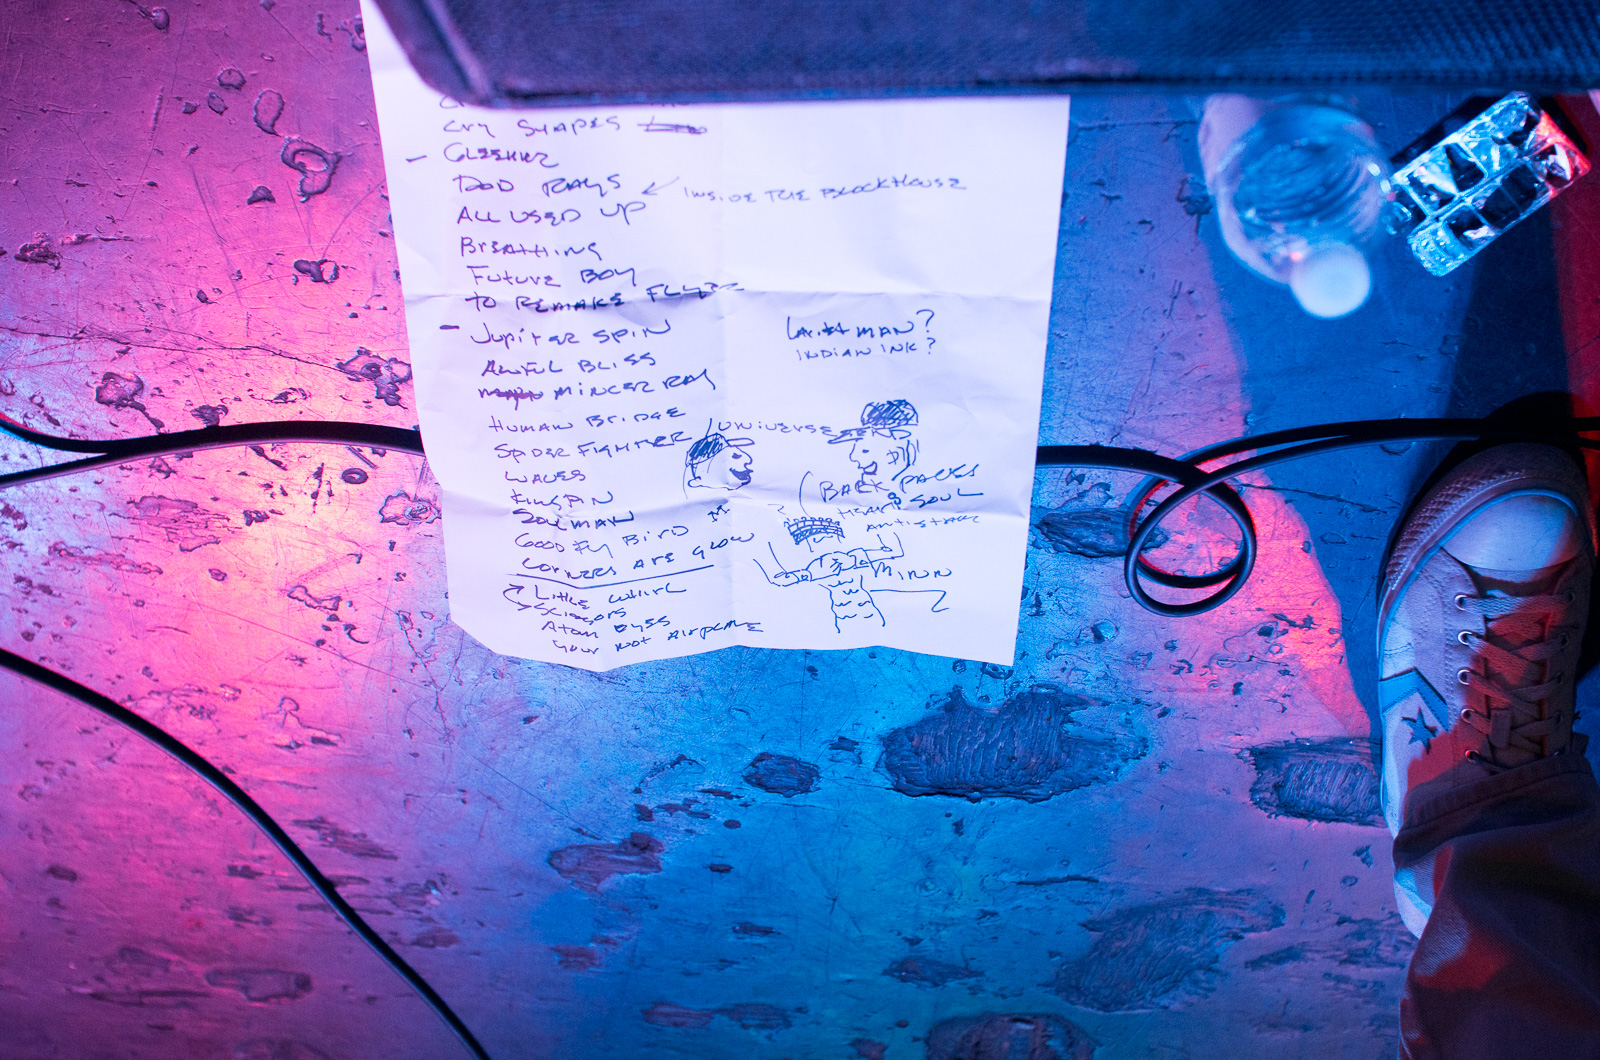 CRY SHAPES
- GLEEMER
DOD RAYS ↙ INSIDE THE BLOCKHOUSE
ALL USED UP
BREATHING
FUTURE BOY
TO REMAKE FLYER
- JUPITER SPIN
AWFUL BLISS
MINCER RAY
HUMAN BRIDGE
SPIDER FIGHTER / UNIVERSE
WAVES
KINGPIN
SOULMAN
GOOD FLY BIRD
CORNERS ARE GLOW
LITTLE WHIRL
SCISSORS
ATOM EYES
YOUR NOT AIRPLANE
MAN?
INDIAN INK?
BACK PACKS
HEART SOUL